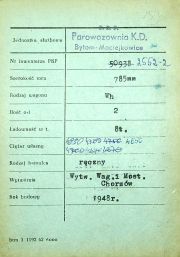 Jednostka służbowa
Parowozownia K.D.
Bytom-Maciejkowice
Nr inwentarza PKP 50938 2562-2
Szerokość toru 785mm
Rodzaj wagonu Wh
Ilość osi 2
Ładowność w t. 8t.
Ciężar własny 4200 4700 4650
Rodzaj hamulca ręczny
Wytwórnia Wytw. Wag. i Most. Chorzów
Rok budowy 1948r.